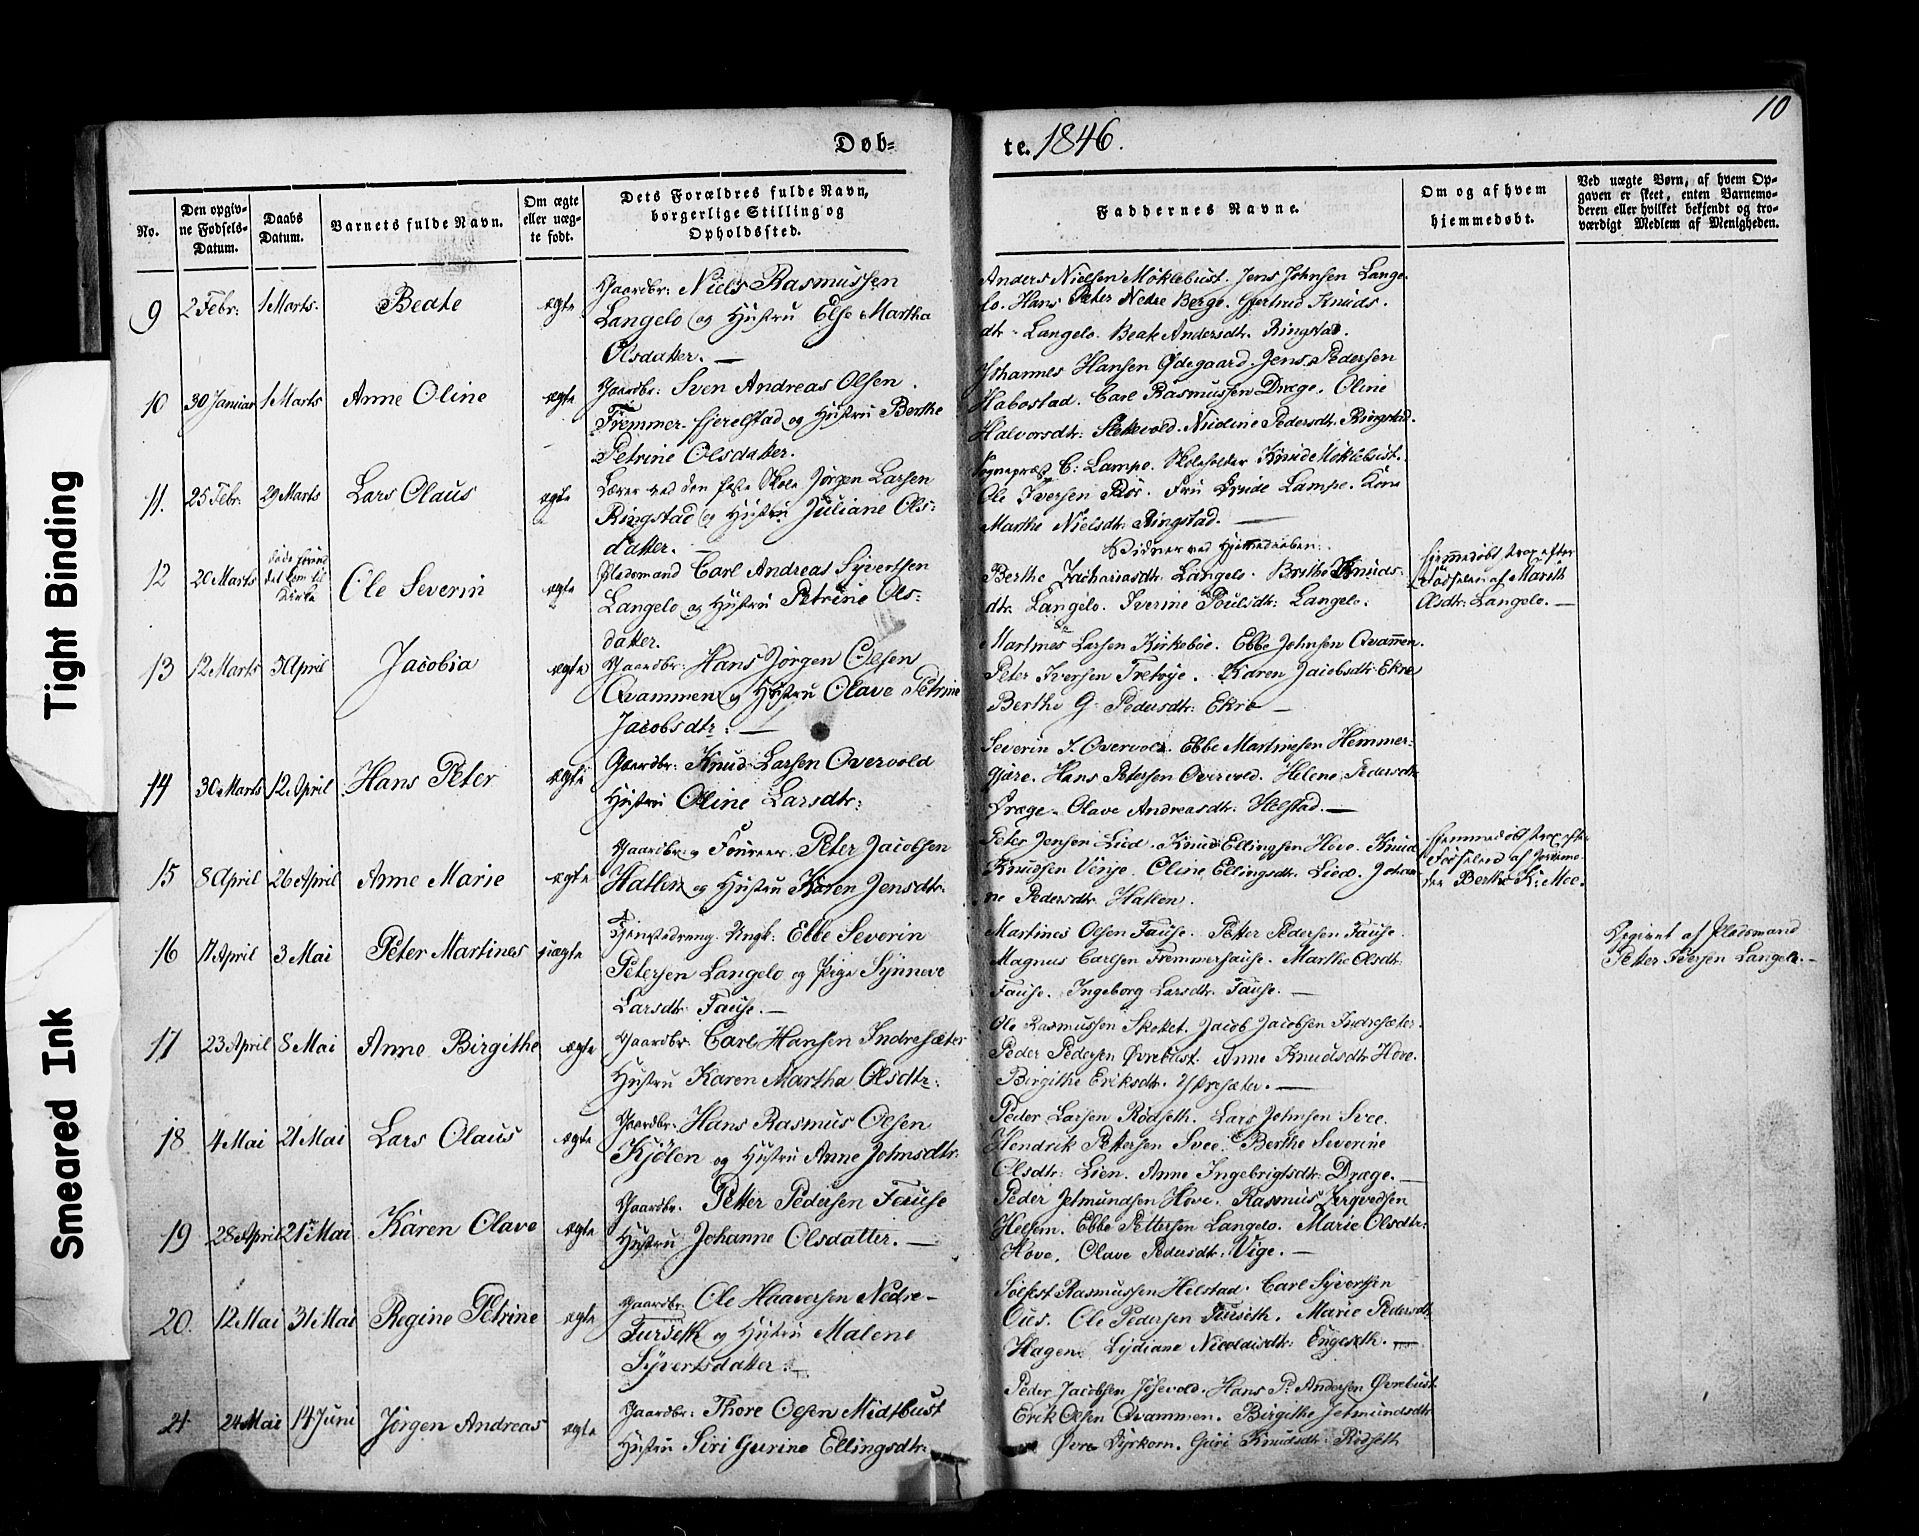 10
Døb=
te. 1846.
No.
Den opgiv-
ne Fødsels-
Datum.
Daabs
Datum.
Barnets fulde Navn.
Om ægte
eller uæg-
te født.
Dets Forældres fulde Navn,
borgerlige Stilling og
Opholdssted.
Faddernes Navne.
Om og af hvem
hjemmedøbt.
Ved uægte Børn, af hvem Op-
gaven er skeet, enten Barnemo-
deren eller hvilket bekjendt og tro-
værdigt Medlem af Menigheden.
9 2 Febr: 1 Marts. Beate ægte
Gaardbr: Niels Rasmussen
Langelo og Hustru Else Martha
Olsdatter. —
Anders Nielsen Möklebust. Jens Johnsen Lange-
lo. Hans Peter Nedre Berge. Gjertrud Knuds-
dtr. Langelo. Beate Andersdtr. Ringstad.
10 30 Januar 1 Marts Anne Oline ægte
Gaardbr: Sven Andreas Olsen
Fremmer-Gjerelstad og Hustru Berthe
Petrine Olsdatter.
Johannes Hansen Ødegaard. Jens Pedersen
Habostad. Carl Rasmussen Dræge. Oline
Halvorsdtr. Nudine Pedersdtr. Ringstad.
11. 25 Febr. 29 Marts Lars Olaus ægte
Lærer ved den faste Skole Jørgen Larsen
Ringstad og Hustru Juliane Ols-
datter.
Sognepræst C: Lampe. Skoleholder Knud Möklebust.
Ole Iversen Fru Lampe. Kone
Marthe Nielsdtr. Ringstad. —
12 20 Marts døde førend
det kom til
Kirke
Ole Severin ægte
Pladsmand Carl Andreas Syvertsen
Langelo og Hustru Petrine Ols-
datter.
Vidner ved Hjemmedaaben:
Berthe Zachariasdtr. Langelo. Berthe Knuds-
dtr. Langelo. Iverine Poulsdtr. Langelo.
Hjemmedøbt strax efter
Fødselen af Marith
Olsdtr: Langelo. —
13 12 Marts 5 April Jacobia ægte
Gaardbr: Hans Jørgen Olsen
Qvammen og Hustru Olave Petrine
Jacobsdtr: —
Martines Larsen Kirkeböe. Ebbe Johnsen Qvammen.
Peter Iversen Tretöye. Karen Jacobsdtr. Ekre
Berthe G. Pedersdtr: Ekre —
14 30 Marts 12 April Hans Peter ægte
Gaardbr: Knud Larsen Overvold
Hustru Oline Larsdtr:
Severin I. Overvold. Ebbe Martinesen Hemmer-
gjære. Hans Petersen Overvold. Helene Pedersdtr.
Dræge. Olave Andreasdtr: Helstad. —
15 8 April 26 April Anne Marie ægte
Gaardbr. og Foureer. Peter Jacobsen
Hatlen og Hustru Karen Jensdtr.
Peter Jensen Lied. Knud Ellingsen Hove. Knud
Knudsen Venje. Oline Ellingsdtr. Lied. Johan-
ne Pedersdtr. Hatlen.
Hjemmedøbt strax efter
Fødselen af Jordemo-
der Berthe K: Moe.
16 17 April 3 Mai Peter Martines uægte
Tjenstedreng. Ungk: Ebbe Severin
Petersen Langelo og Pige Synneve
Larsdtr. Fause. —
Martines Olsen Fause. Petter Pedersen Fause.
Magnus Carlsen Fremmerhause. Marthe Olsdtr.
Fause. Ingeborg Larsdtr. Fause. —
Opgivet af Pladsmand
Petter Iversen Langelo. —
17 23 April 8 Mai Anne Birgithe ægte
Gaardbr. Carl Hansen Indresæter
Hustru Karen Martha Olsdtr:
Ole Rasmussen Skottet. Jacob Jacobsen Indresæter.
Peder Pedersen Øvrebust. Anne Knudsdtr. Hove.
Birgithe Eriksdtr. Ystresæter. —
18 4 Mai 21 Mai Lars Olaus ægte
Gaardbr. Hans Rasmus Olsen
Kjölen og Hustru Anne Johnsdtr.
Peder Larsen Rödseth. Lars Johnsen Svee.
Hendrik Pettersen Svee. Berthe Severine
Olsdtr: Lien. Anne Ingebrigtsdtr: Dræge. —
19 28 April 21 Mai Karen Olave ægte
Gaardbr. Petter Pedersen Fause
Hustru Johanne Olsdatter. —
Peder Jetmundsen Hove. Rasmus
Helsem. Ebbe Pettersen Langelo. Marie Olsdtr:
Hove. Olave Pedersdtr: Vige. —
20. 12 Mai 31 Mai Regine Petrine ægte
Gaardbr. Ole Haaversen Nedre-
Furseth og Hustru Malene
Syvertsdatter. —
Solfest Rasmussen Helstad. Carl Syvertsen
Ous. Ole Pedersen Furseth. Marie Pedersdtr.
Hagen. Lydiane Nicolaisdtr: Engeseth. —
21 24 Mai 14 Juni Jørgen Andreas ægte
Gaardbr: Thore Olsen Midtbust
Hustru Siri Gurine Ellingsdtr:
Peder Jacobsen Josevold. Hans P. Andersen Øvrebust.
Erik Olsen Qvammen. Birgithe Jetmundsdtr
Øvre Dyrkorn. Guri Knudsdtr. Rödseth
Tight Binding
Smeared Ink